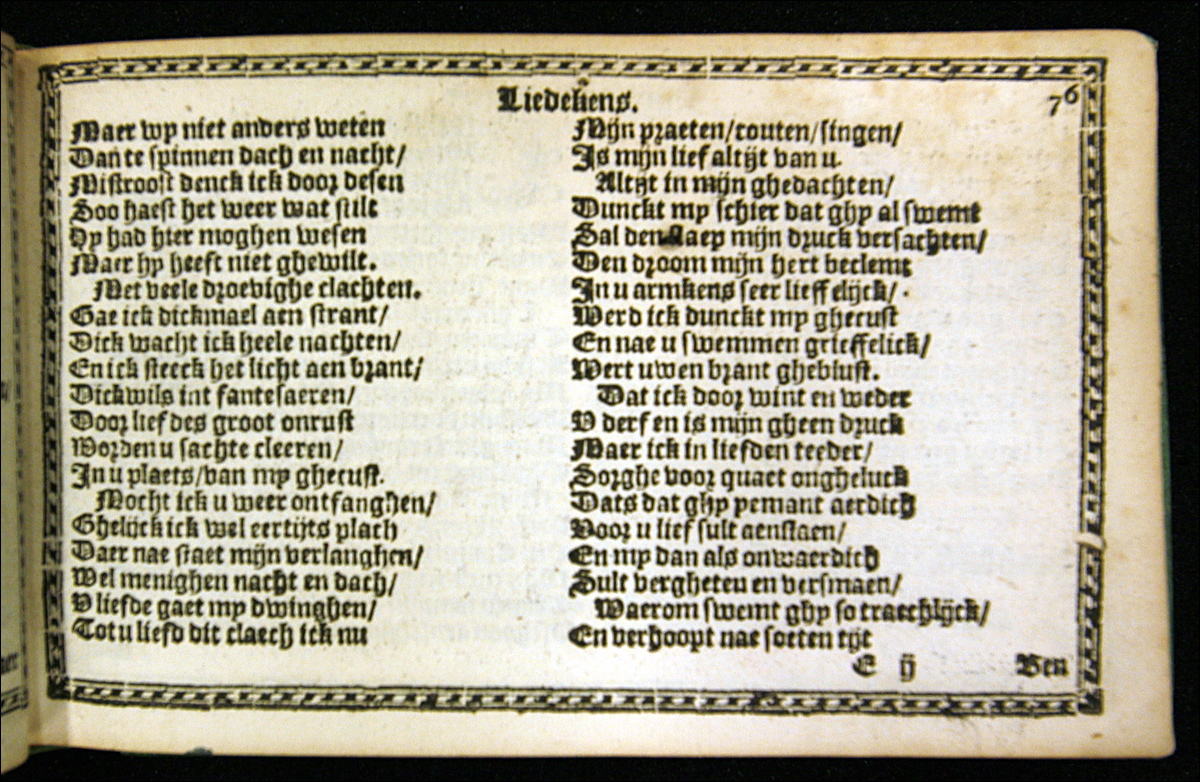 Liedekens.
76
Maer wy niet anders weten
Dan te spinnen dach en nacht/
Mistroost denck ick door desen
Soo haest het weer wat stilt
Hy had hier moghen wesen
Maer hy heeft niet ghewilt.
Met veele droevighe clachten.
Gae ick dickmael aen strant/
Dick wacht ick heele nachten/
En ick steeck het licht aen brant/
Dickwils int fantesaeren/
Door lief des groot onrust
Worden u sachte cleeren/
In u plaets/van my ghecust.
Mocht ick u weer ontfanghen/
Ghelijck ick wel eertijts plach
Daer nae staet mijn verlanghen/
Wel menighen nacht en dach/
V liefde gaet my dwinghen/
Tot u liefd dit claech ick nu
Mijn praeten/couten/singen/
Is mijn lief altijt van u.
Altijt in mijn ghedachten/
Dunckt my schier dat ghy al swemt
Sal den slaep mijn druck versachten/
Den droom mijn hert beclemt
In u armkens seer lieffelijck/
Werd ick dunckt my ghecust
En nae u swemmen grieffelick/
Wert uwen brant gheblust.
Dat ick door wint en weder
V derf en is mijn gheen druck
Maer ick in liefden teeder/
Sorghe voor quaet ongheluck
Dats dat ghy yemant aerdich
Voor u lief sult aenstaen/
En my dan als onwaerdich
Sult vergheten en versmaen/
Waerom swemt ghy so traechlijck/
En verhoopt nae soeten tijt
E ij
Ben